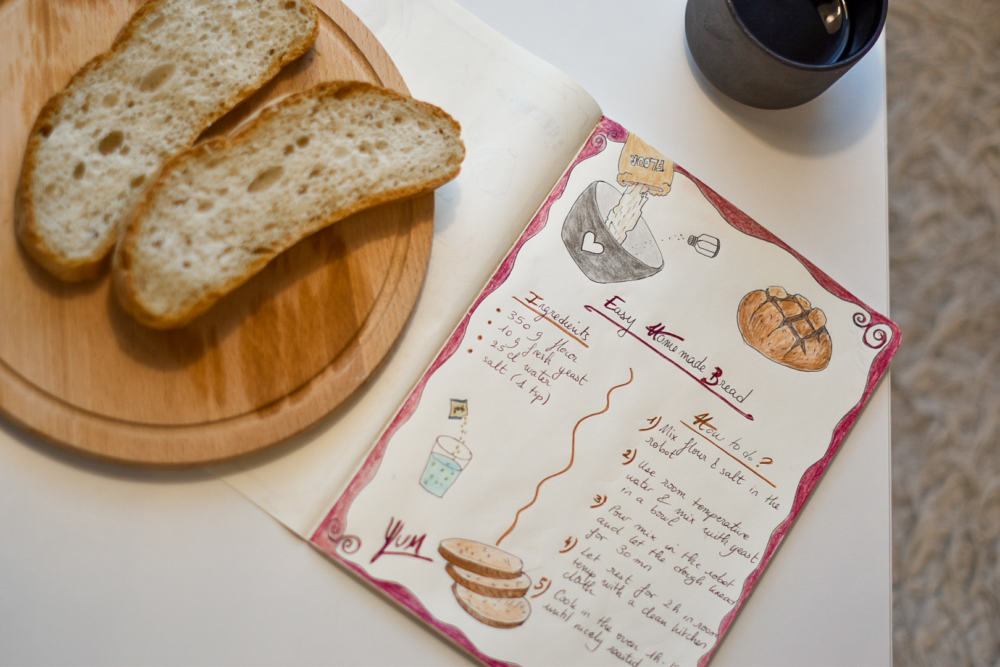 FLOUR
Easy Homemade Bread
Ingredients
350 g flour
10 g fresh yeast
25 cl water
salt (1 tsp)
How to do?
1) Mix flour & salt in the
robot
2) Use room temperature
water & mix with yeast
in a bowl
3) Pour mix in the robot
and let the dough knead
for 30 mn
4) Let rest for 2h in room
temp with a clean kitchen
cloth
5) Cook in the oven 1h
until nicely roasted
YUM